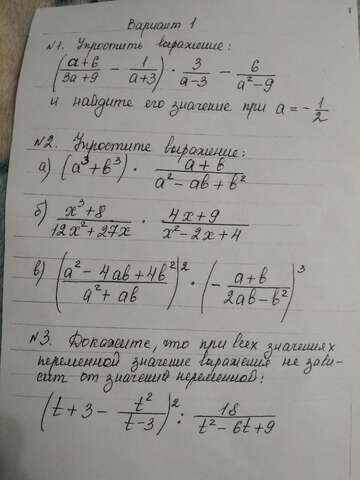 Вариант 1
№1. Упростить выражение:
((a+6)/(3a+9) − 1/(a+3)) · 3/(a−3) − 6/(a²−9)
и найдите его значение при a = −1/2
№2. Упростите выражение:
а) (a³+b³) · (a+b)/(a²−ab+b²)
б) (x³+8)/(12x²+27x) · (4x+9)/(x²−2x+4)
в) ((a²−4ab+4b²)/(a²+ab))² · (−(a+b)/(2ab−b²))³
№3. Докажите, что при всех значениях
переменной значение выражения не зави-
сит от значения переменной:
(t+3 − t²/(t−3))² : 18/(t²−6t+9)